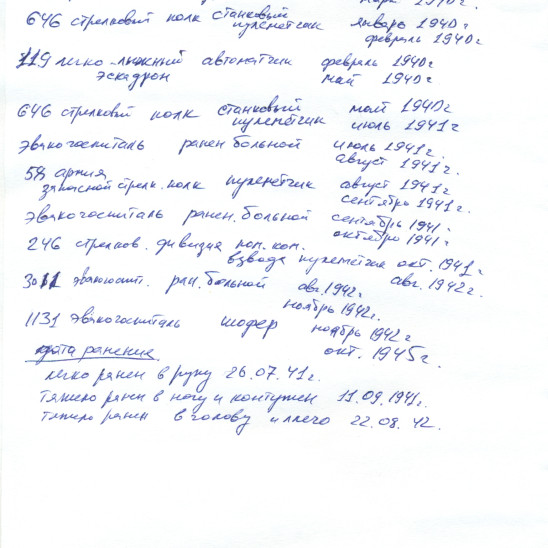 март 1940г
646 стрелковый полк станковый январь 1940г
пулеметчик февраль 1940г
119 легко-лыжный автоматчик февраль 1940г
эскадрон май 1940г
646 стрелковый полк станковый май 1940г
пулемётчик июль 1941г
эвакогоспиталь ранен больной июль 1941г.
август 1941г.
58 армия
запасной стрелк. полк пулеметчик август 1941г
сентябрь 1941г.
эвакогоспиталь ранен. больной сентябрь 1941г
октябрь 1941г
246 стрелков. дивизия пом. ком.
взвода пулеметчик окт. 1941г
авг. 1942г.
3011 эвакогоспит. ран. больной авг. 1942г.
ноябрь 1942г.
1131 эвакогоспиталь шофер ноябрь 1942г
окт. 1945г.
дата ранение
легко ранен в руку 26.07.41г.
тяжело ранен в ногу и контужен 11.09.1941г.
тяжело ранен в голову и плечо 22.08.42.